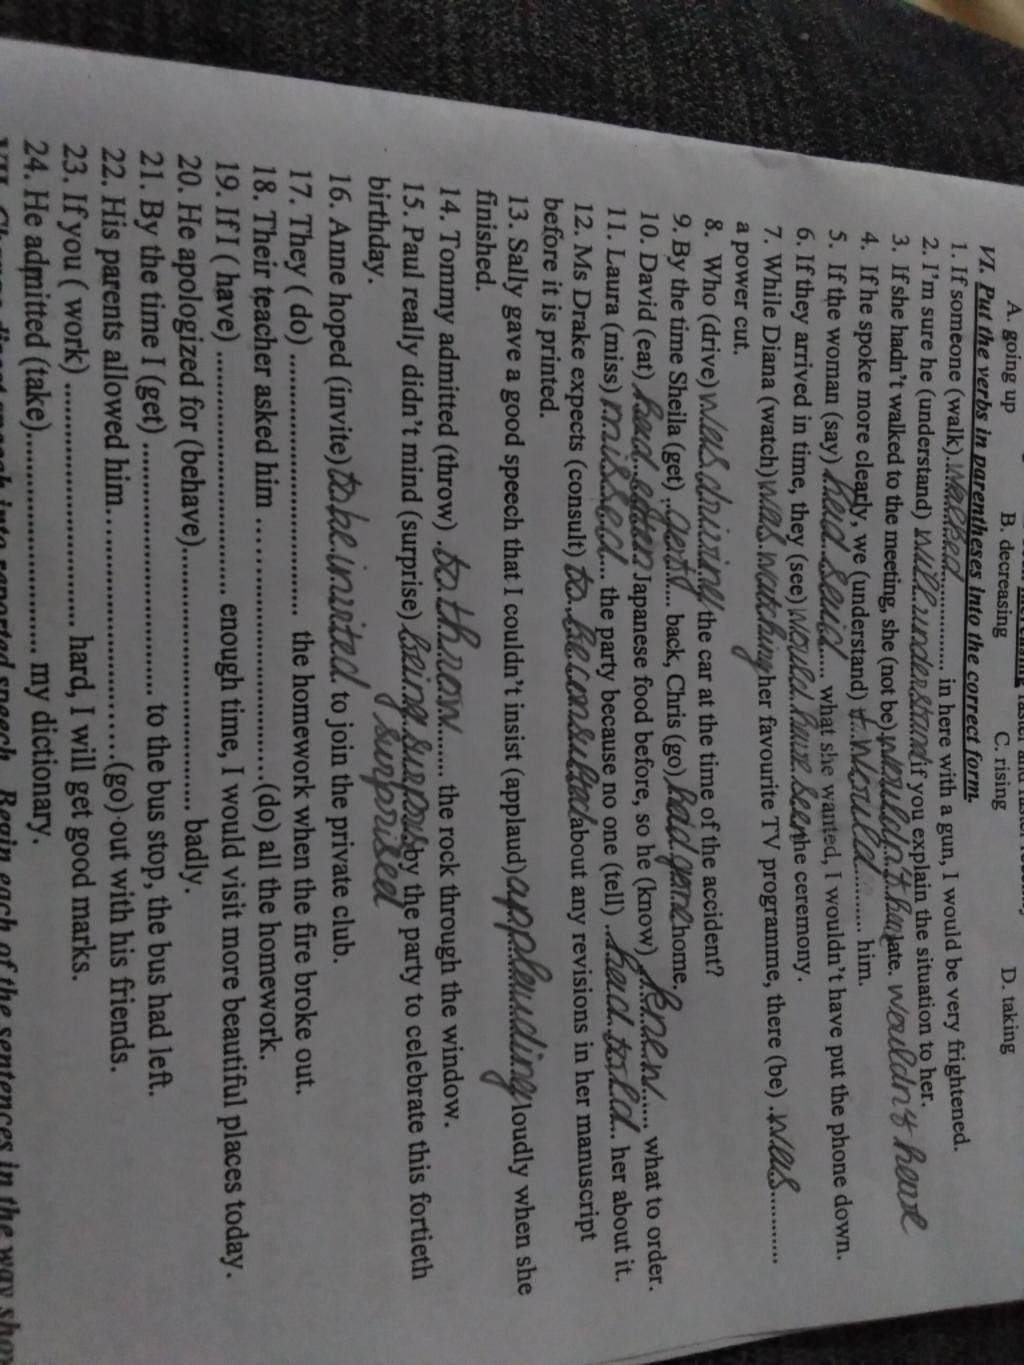 A. going up B. decreasing C. rising D. taking
VI. Put the verbs in parentheses into the correct form.
1. If someone (walk) walked in here with a gun, I would be very frightened.
2. I'm sure he (understand) will understand if you explain the situation to her.
3. If she hadn't walked to the meeting, she (not be) late. wouldn't have
4. If he spoke more clearly, we (understand) would him.
5. If the woman (say) had said what she wanted, I wouldn't have put the phone down.
6. If they arrived in time, they (see) would have seen the ceremony.
7. While Diana (watch) was watching her favourite TV programme, there (be) was
a power cut.
8. Who (drive) was driving the car at the time of the accident?
9. By the time Sheila (get) back, Chris (go) had gone home.
10. David (eat) had eaten Japanese food before, so he (know) what to order.
11. Laura (miss) missed the party because no one (tell) had told her about it.
12. Ms Drake expects (consult) to be consulted about any revisions in her manuscript
before it is printed.
13. Sally gave a good speech that I couldn't insist (applaud) applauding loudly when she
finished.
14. Tommy admitted (throw) to throw the rock through the window.
15. Paul really didn't mind (surprise) being by the party to celebrate this fortieth
surprised
birthday.
16. Anne hoped (invite) to be invited to join the private club.
17. They ( do) ........................ the homework when the fire broke out.
18. Their teacher asked him ........................(do) all the homework.
19. If I ( have) ........................ enough time, I would visit more beautiful places today.
20. He apologized for (behave)........................ badly.
21. By the time I (get) ........................ to the bus stop, the bus had left.
22. His parents allowed him........................(go) out with his friends.
23. If you ( work) ........................ hard, I will get good marks.
24. He admitted (take)........................ my dictionary.